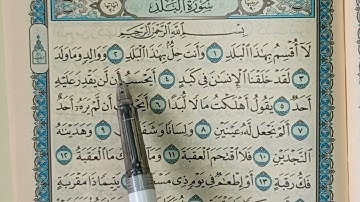 سُورَةُ البَلَدِ
بِسْمِ اللَّهِ الرَّحْمَٰنِ الرَّحِيمِ
لَا أُقْسِمُ بِهَٰذَا الْبَلَدِ ١ وَأَنتَ حِلٌّ بِهَٰذَا الْبَلَدِ ٢ وَوَالِدٍ وَمَا وَلَدَ
٣ لَقَدْ خَلَقْنَا الْإِنسَٰنَ فِي كَبَدٍ ٤ أَيَحْسَبُ أَن لَّن يَقْدِرَ عَلَيْهِ
أَحَدٌ ٥ يَقُولُ أَهْلَكْتُ مَالًا لُّبَدًا ٦ أَيَحْسَبُ أَن لَّمْ يَرَهُ أَحَدٌ
٧ أَلَمْ نَجْعَل لَّهُ عَيْنَيْنِ ٨ وَلِسَانًا وَشَفَتَيْنِ ٩ وَهَدَيْنَٰهُ
النَّجْدَيْنِ ١٠ فَلَا اقْتَحَمَ الْعَقَبَةَ ١١ وَمَا أَدْرَىٰكَ مَا الْعَقَبَةُ ١٢
فَكُّ رَقَبَةٍ ١٣ أَوْ إِطْعَٰمٌ فِي يَوْمٍ ذِي مَسْغَبَةٍ ١٤ يَتِيمًا ذَا مَقْرَبَةٍ